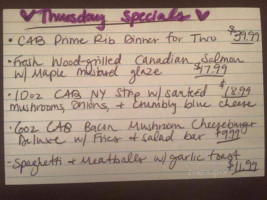 Thursday Specials
• CAB Prime Rib Dinner for Two $39.99
• Fresh Wood-grilled Canadian Salmon
w/ Maple mustard glaze $17.99
• 10oz CAB NY Strip w/ sautéed $18.99
mushrooms, onions, & crumbly blue cheese
• 6oz CAB Bacon Mushroom Cheeseburger
Deluxe w/ Fries & salad bar $9.99
- Spaghetti & Meatballs w/ garlic toast
$11.99